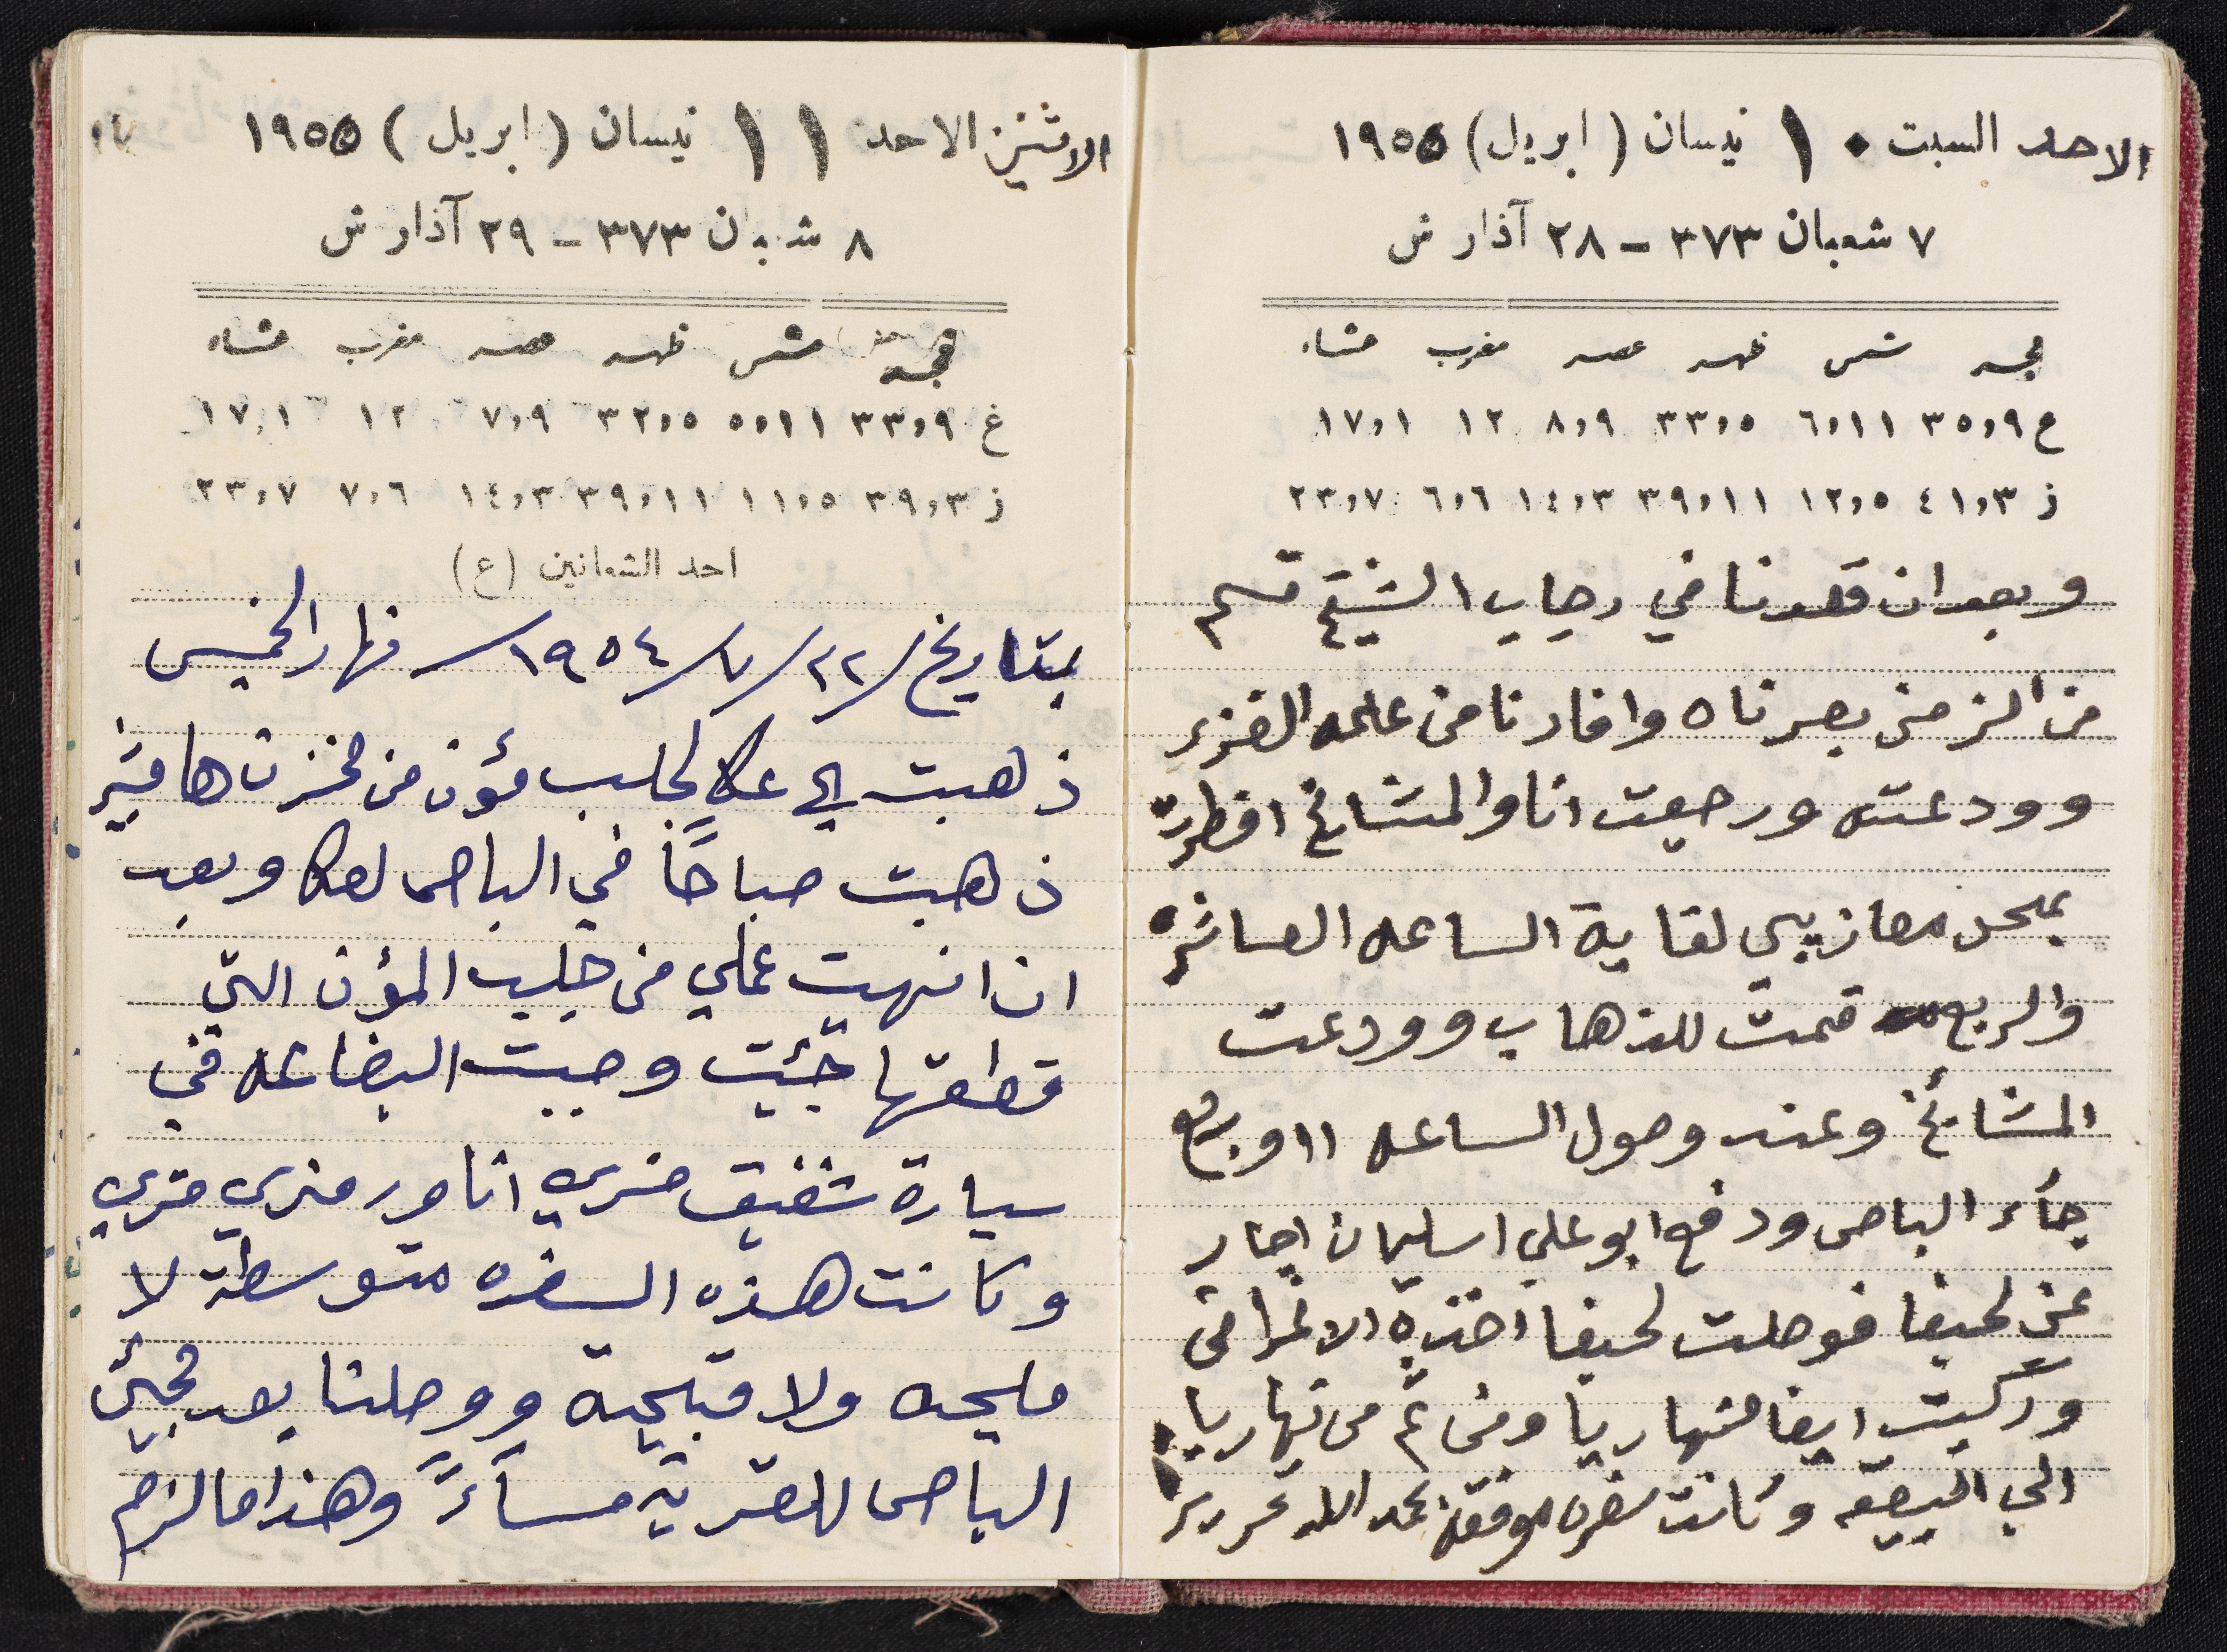 الاحد السبت ١٠ نيسان (ابريل) ١٩٥٥
٧ شعبان ٣٧٣ – ٢٨ آذار ش
فجر شمس ظهر عصر مغرب عشاء
غ ٣٥،٩ ٦،١١ ٣٣،٥ ٨،٩ ١٢ ١٧،١
ز ٤١،٣ ١٢،٥ ٣٩،١١ ١٤،٣ ٦،٦ ٢٣،٧
وبعد ان قعدنا في رحاب الشيخ قسم
من الزمن بصرناه وافادنا من علمه الغزير
وودعته ورجعت انا والمشائخ افطرت
بمحل معازيبي لغاية الساعه العاشره
والربع قمت للذهاب وودعت
المشائخ وعند وصول الساعه ١١ وربع
جآء الباص ودفع ابو علي اسليمان اجار
عني لحيفا فوصلت لحيفا اخذه الاغراض
وركبت ايضا لنهاريا ومن ثم من نهاريا
الى البقيعه وكانت سفره موفقه بحمد الله تحريرا
الاثنين الاحد ١١ نيسان (ابريل) ١٩٥٥
٨ شعبان ٣٧٣ – ٢٩ آذار ش
فجر شمس ظهر عصر مغرب عشاء
غ ٣٣،٩ ٥،١١ ٣٢،٥ ٧،٩ ١٢ ١٧،١
ز ٣٩،٣ ١١،٥ ٣٩،١١ ١٤،٣ ٧،٦ ٢٣،٧
احد الشعانين (ع)
بتاريخ ٢٢/٧/١٩٥٤ نهار الخميس
ذهبت الى عكا لجلب مؤن من مخزن هامشبير
ذهبت صباحًا في الباص لعكا وبعد
ان انهيت عملي من جلب المؤن التي
قطعتها جئت وجبت البضاعه في
سيارة شفيق خوري انا ورمزي خوري
وكانت هذه السفره متوسطة لا
مليحه ولا قبيحة ووصلنا بعد مجيئ
الباص للقرية مسآءً وهذا ما لزم